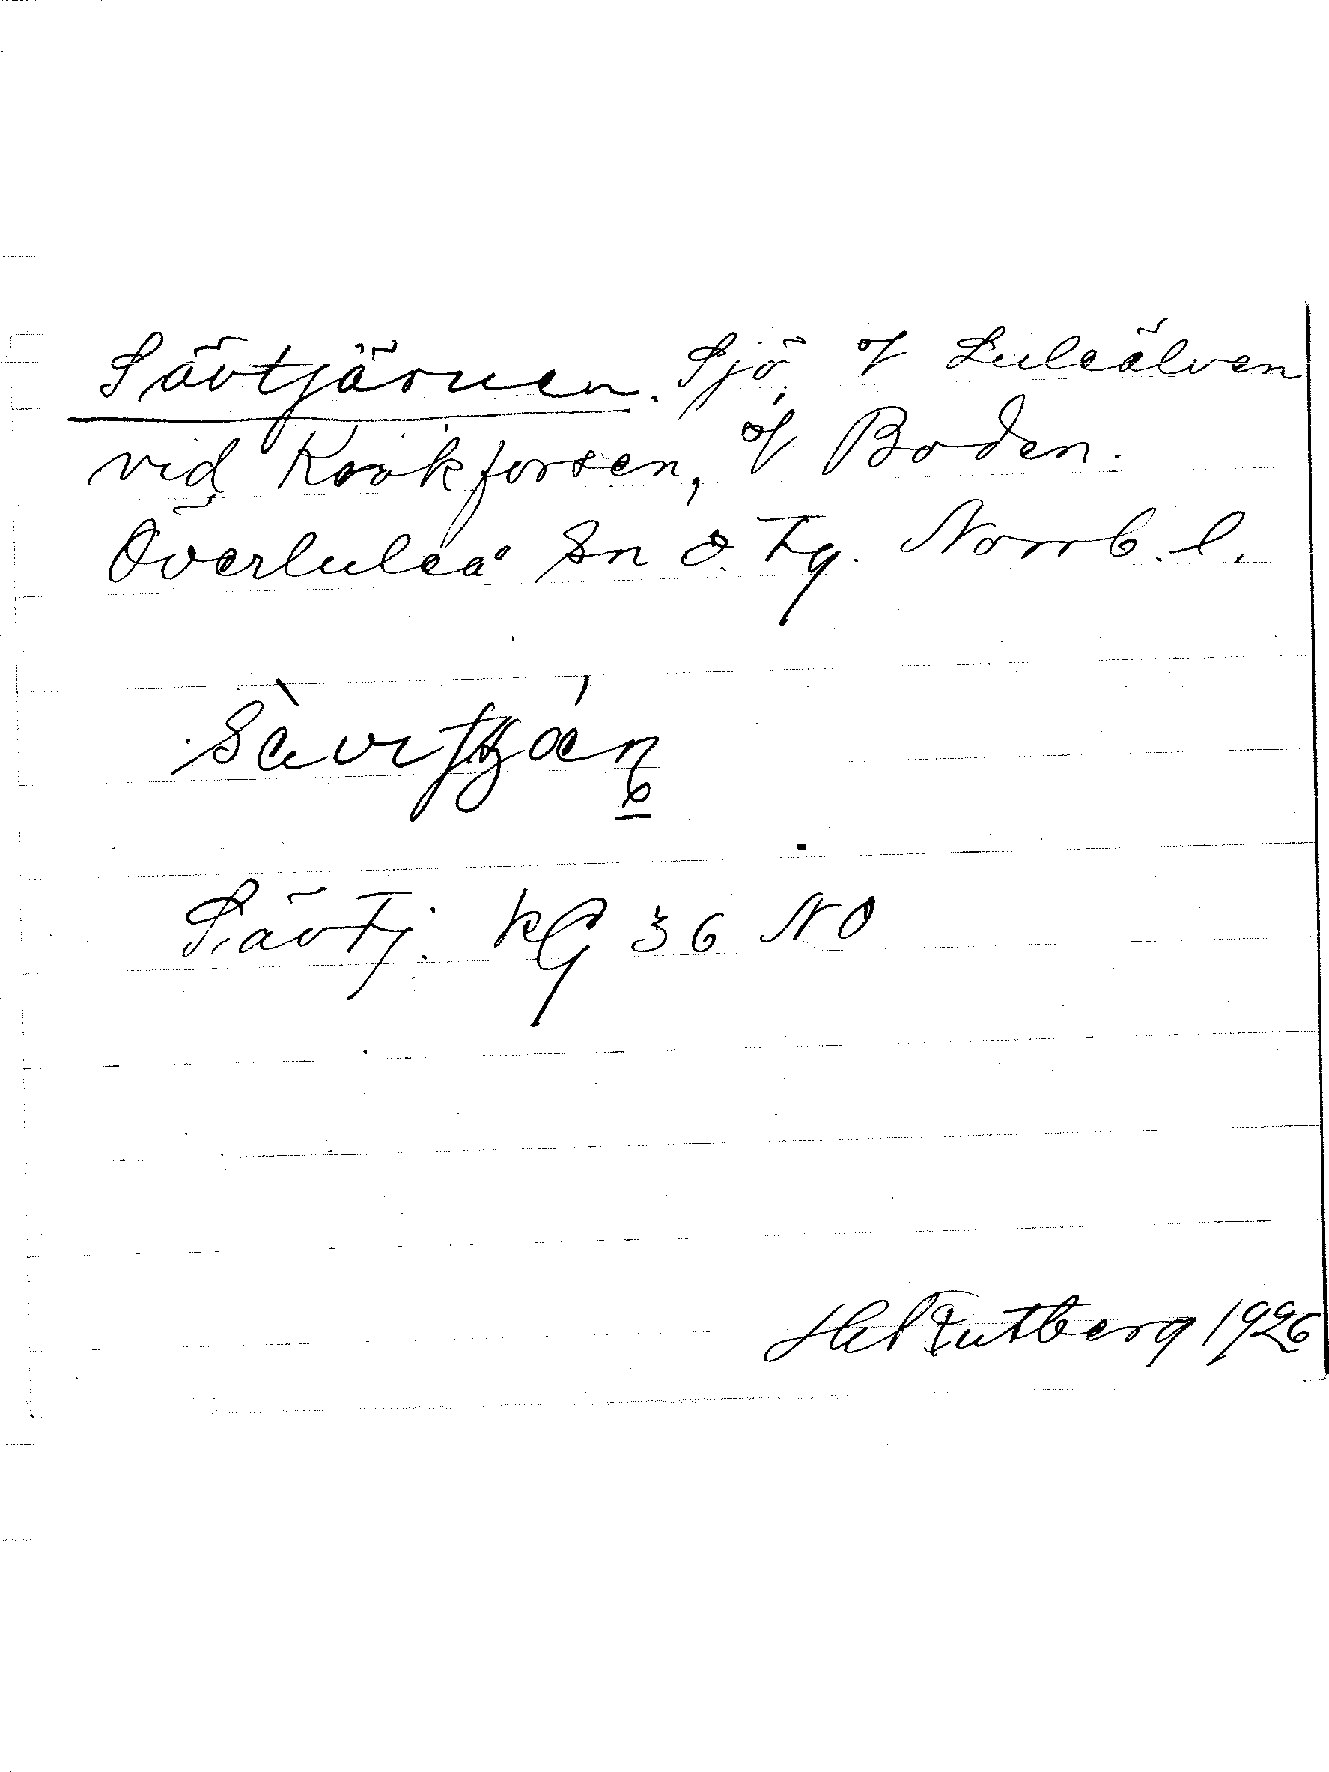 Sävtjärnen. Sjö, of Luleälven
vid Kråkforsen, of Boden.
Överluleå Sn o. Tg. Norrb. l.
Sävtj. KG 36 NO
Hel Rutberg 1926